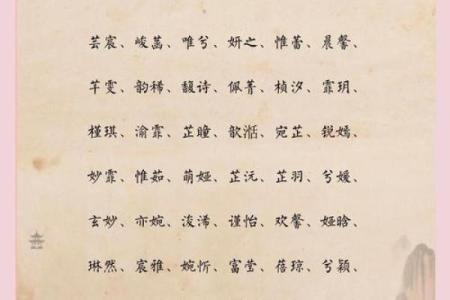 芸宸、峻菡、唯兮、妍之、惟蕾、晨馨、
芊雯、韵稀、馥诗、佩菁、桢汐、霏玥、
槿琪、渝霏、芷瞳、歆湉、宛芷、锐嫣、
妙霏、惟茹、萌娅、芷沅、芷羽、兮媛、
玄妙、亦婉、浚浠、谨怡、欢馨、娅晗、
琳然、宸雅、婉忻、富莹、蓓琼、兮颖、